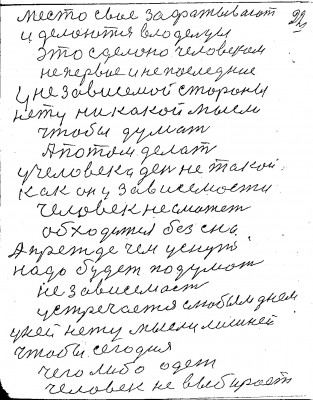 место свое задратывают 22
и делоются владелцы
это сделоно человеком
не первые и не последние
У не зависемой стороны
нету никакой мысли
чтобы думат
А потом делат
у человека ден не такой
как он у зависемости
человек несможет
обходится без сна
А прежде чем уснут
надо будет подумат
не зависемаст
устречается с любым днем
у ней нету мысли лишней
чтобы сегодня
чего либо одет
человек не выбирает